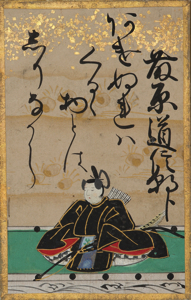 藤原道信朝臣
あけぬれハ
くるゝ物とは
しりなから